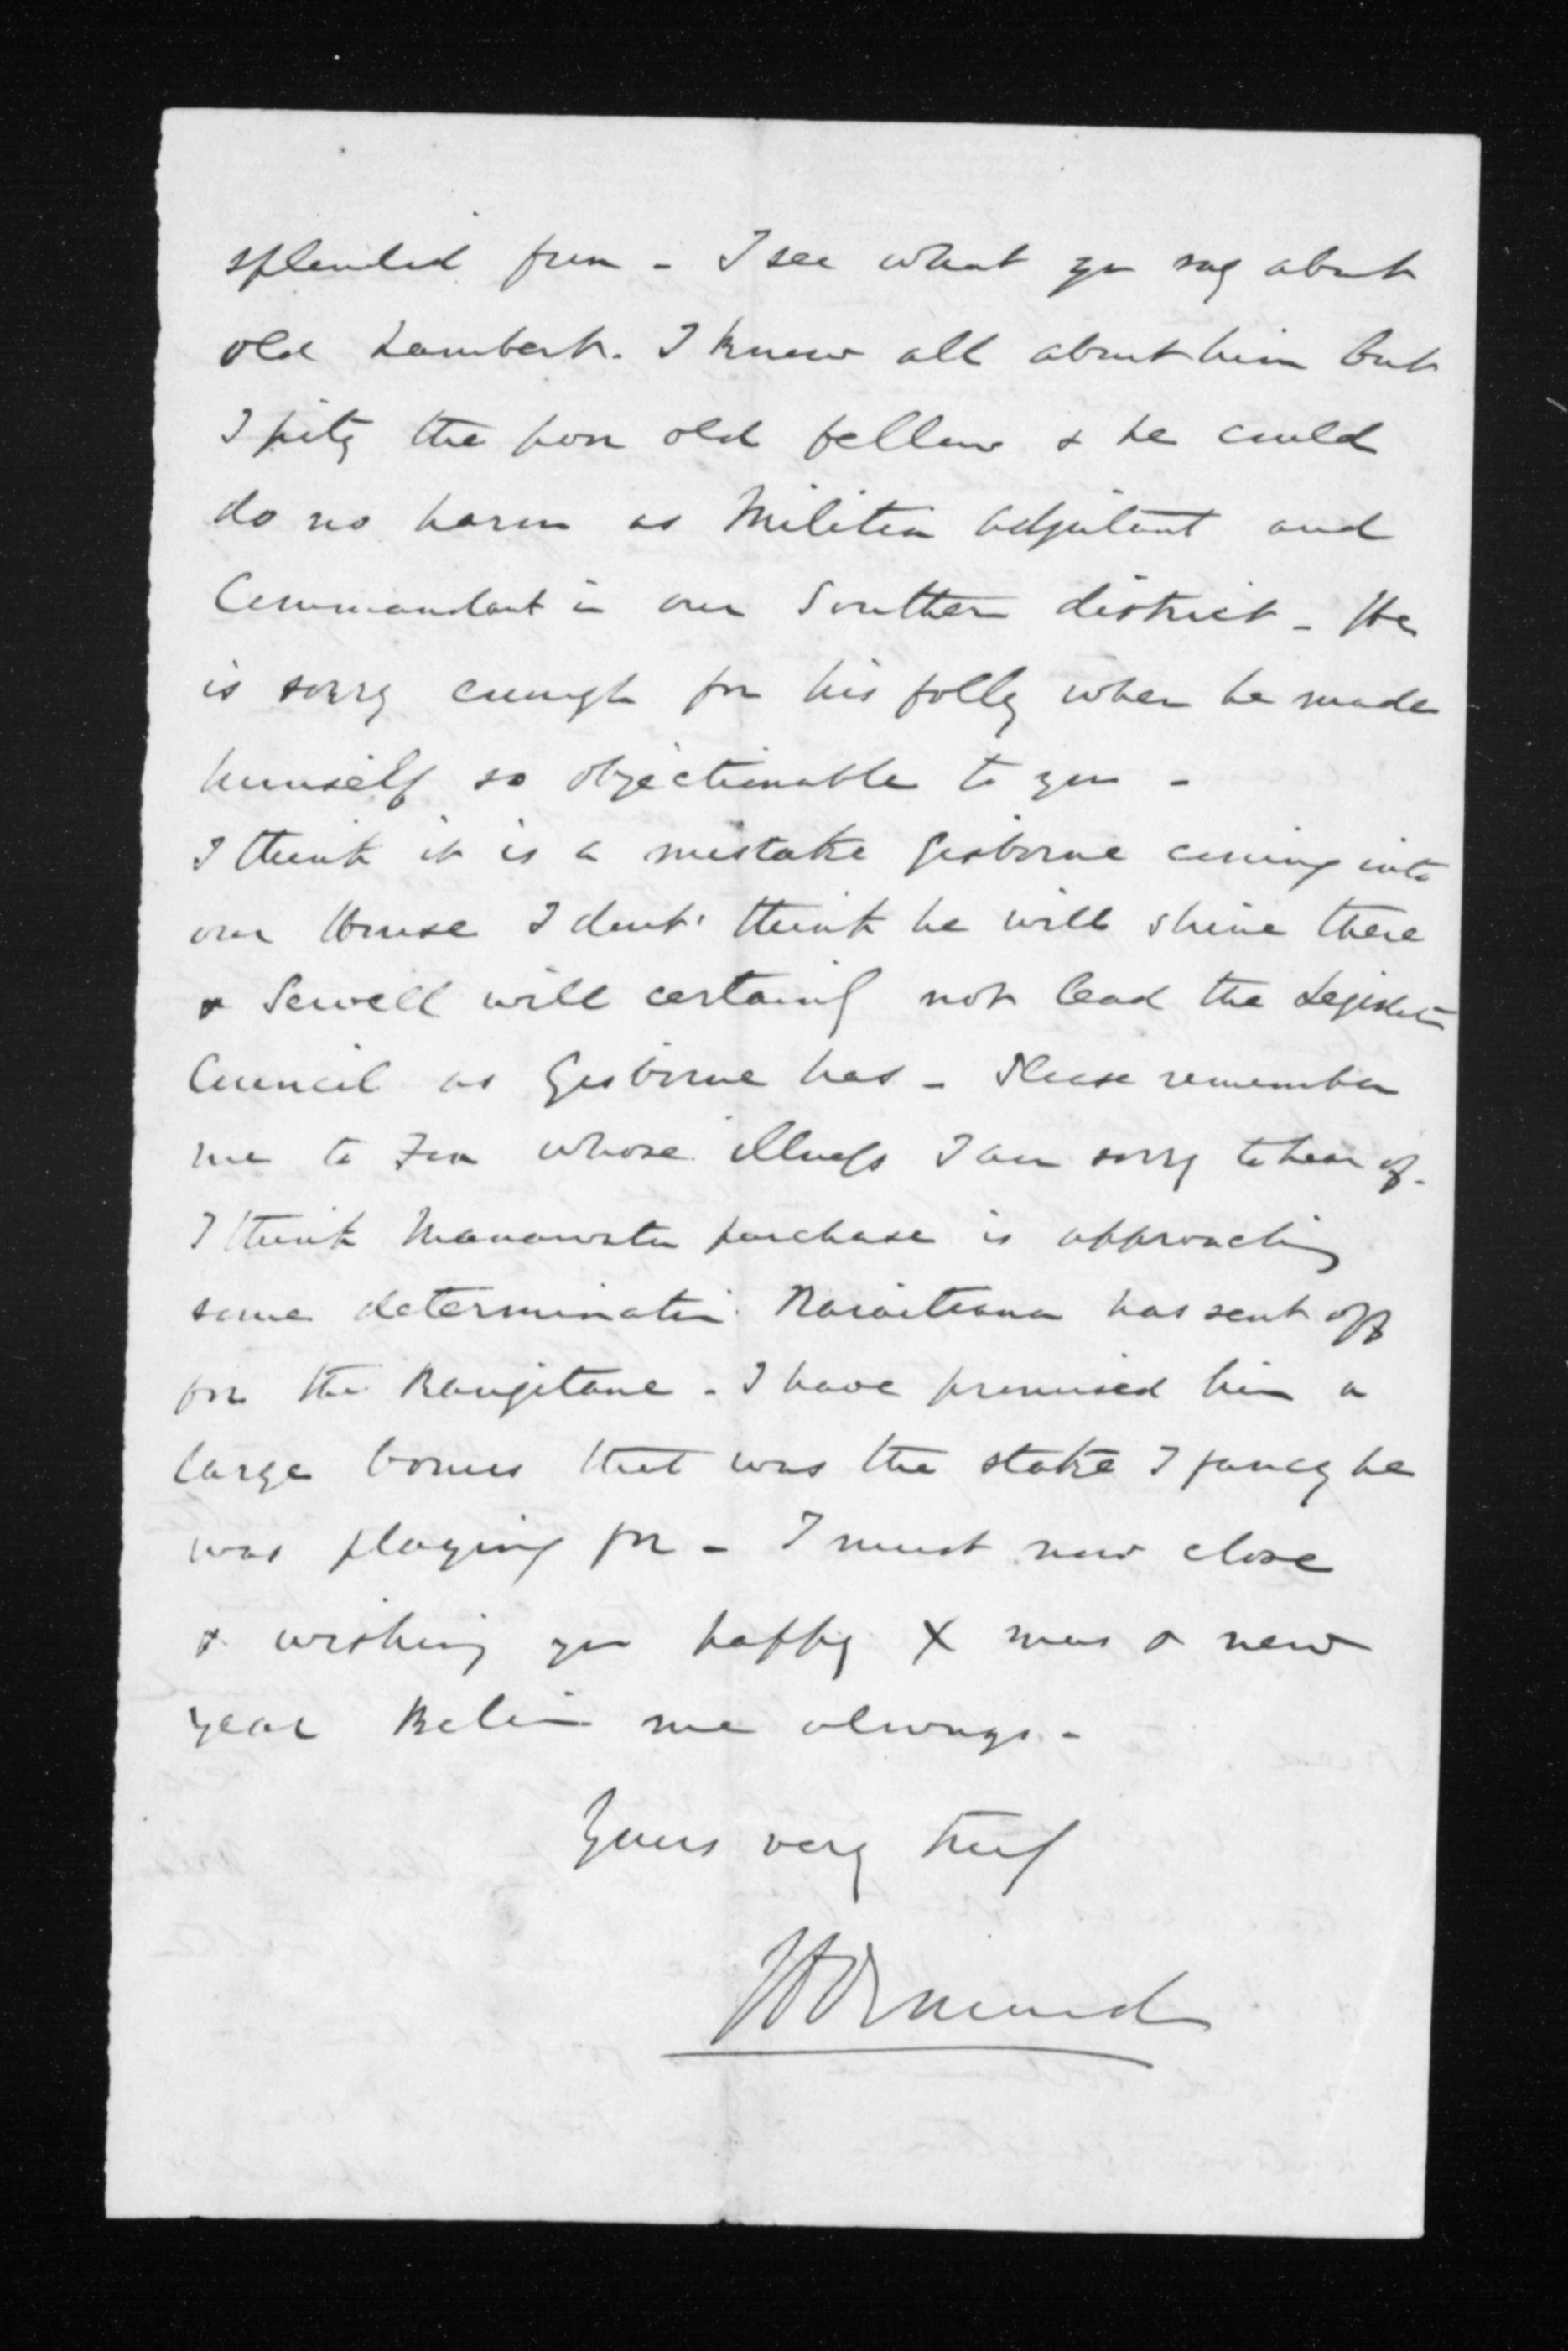 splendid fun - I see what you say about
old Lambert. I know all about him but
I pity the poor old fellow & he could
do no harm as Militia Adjutant and
Commandant in our Southern district - He
is sorry enough for his folly when he made
himself so objectionable to you -
I think it is a mistake Gisborne coming into
our House I dont think he will shine there
& Sewell will certainly not lead the Legislative
Council as Gisborne has - Please remember
me to whose illness I am sorry to hear of -
I think Manawatu purchase is approaching
some determination. Karaitiana has sent off
for the Rangitane - I have promised him a
large bonus that was the stake I fancy he
was playing for - I must now close
& wishing you happy Xmas & new
year Believe me always -
Yours very truly
JD Ormond